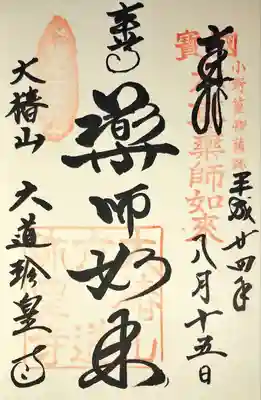 奉拝
平成廿四年
八月十五日
小野篁卿舊跡
薬師如来
薬師如来
大椿山
六道珍皇寺